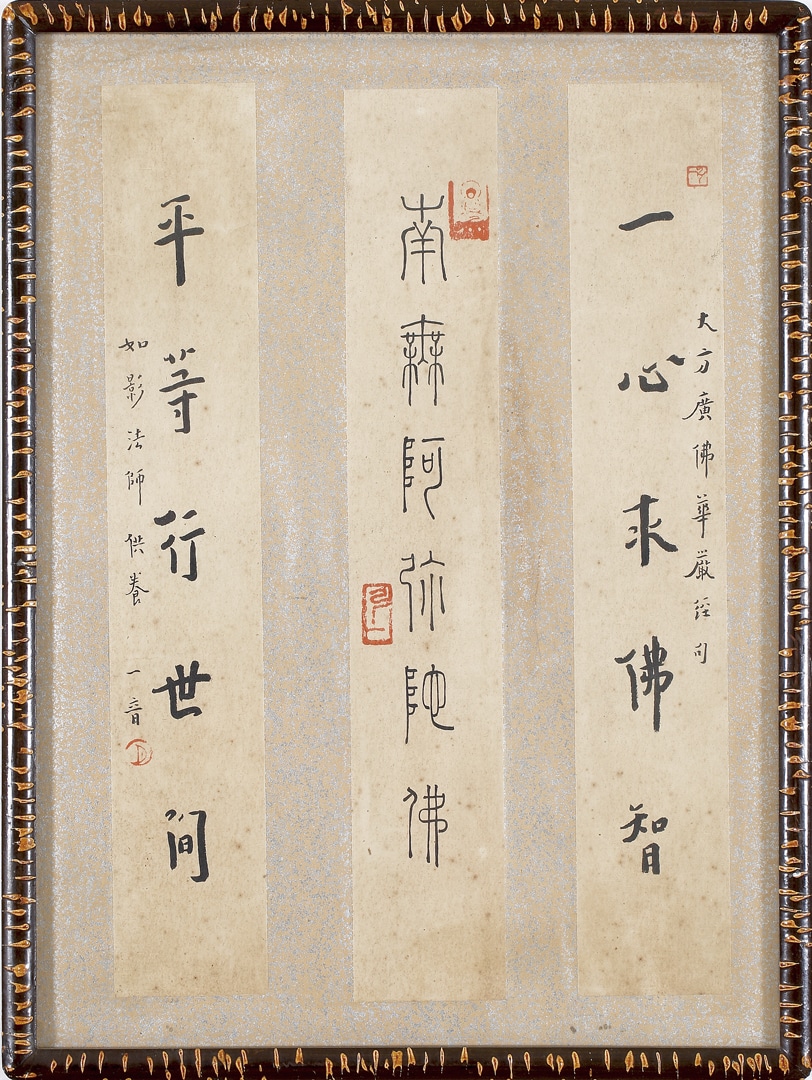 大方廣佛華嚴經句
一心求佛智
南無阿弥陀佛
平等行世間
如影法師供養 一音